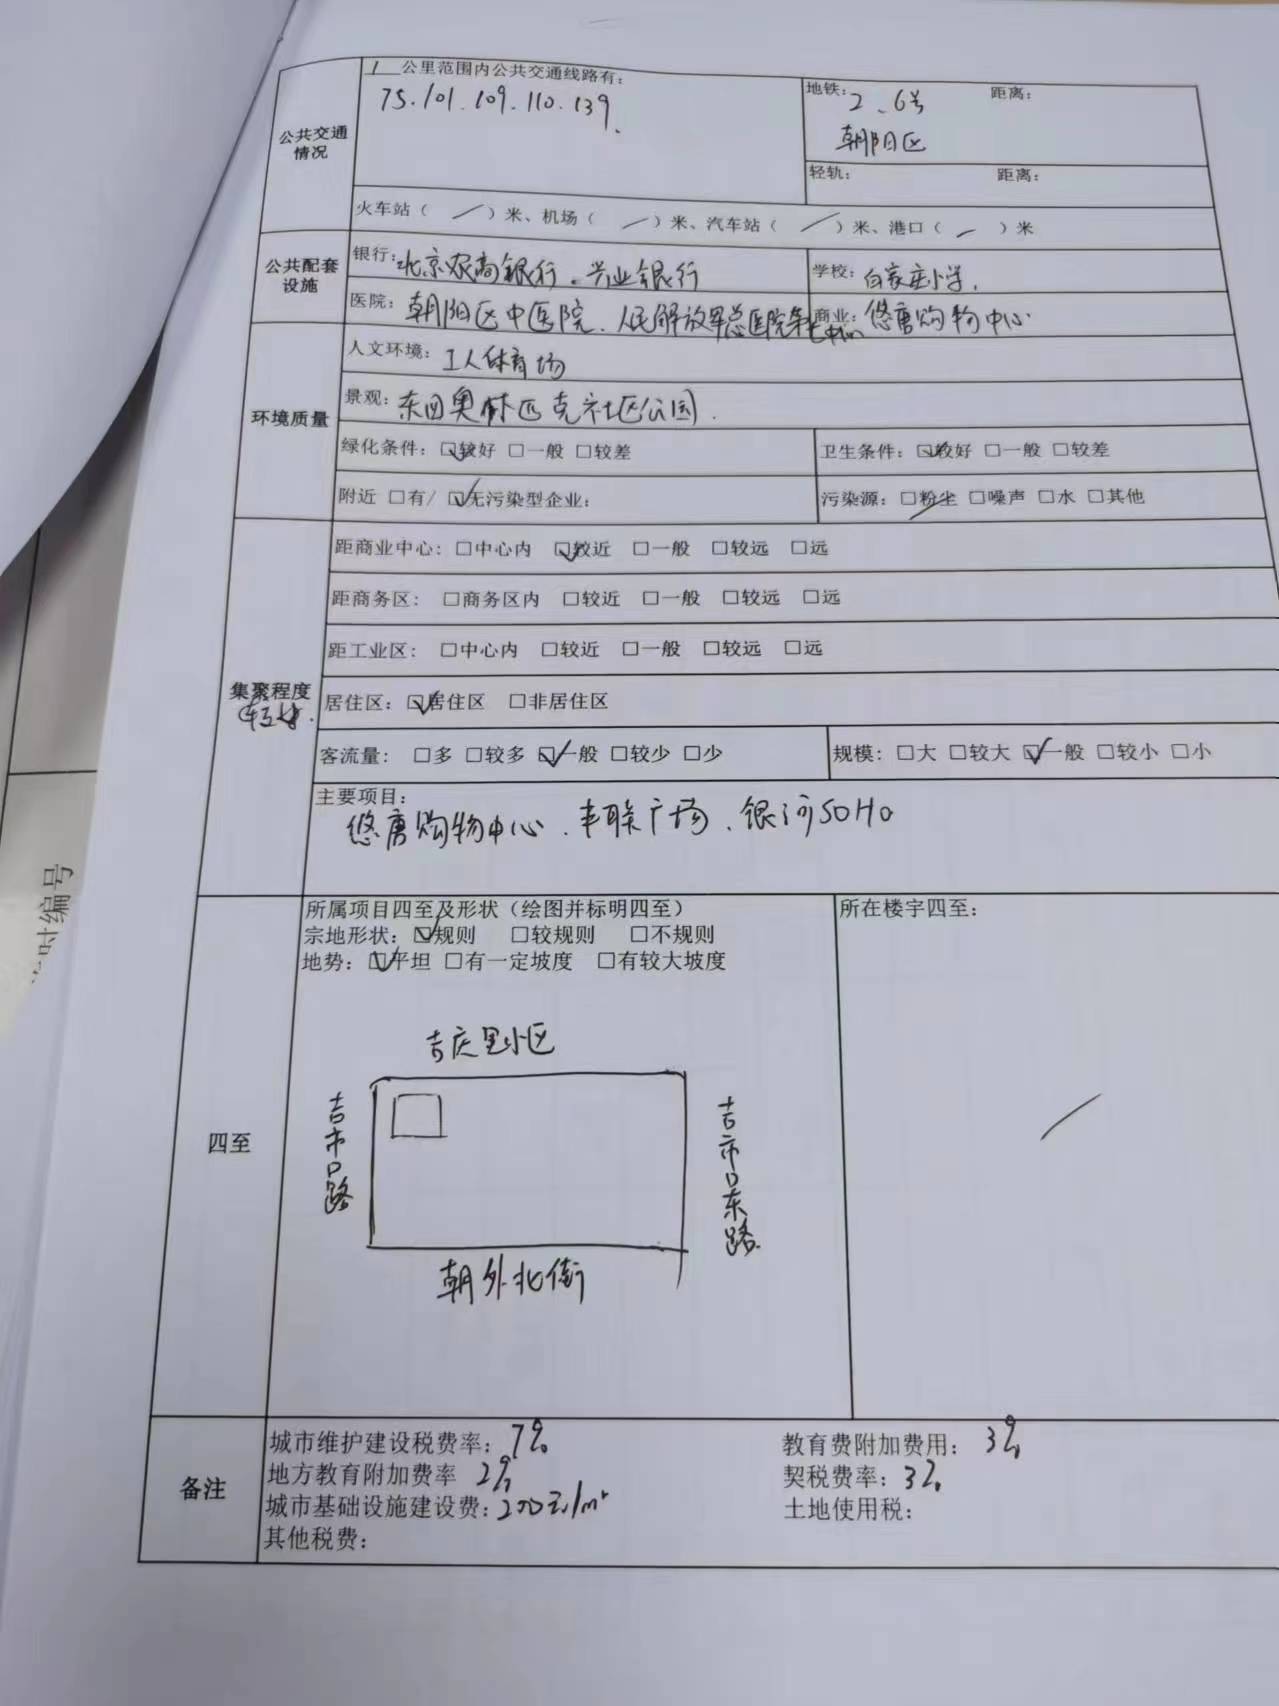 1 公里范围内公共交通线路有：
75.101.109.110.139.
地铁：2、6号 距离：
朝阳区
公共交通
情况
轻轨： 距离：
火车站（ ／ ）米、机场（ ／ ）米、汽车站（ ／ ）米、港口（ ／ ）米
公共配套
设施
银行：北京农商银行、兴业银行
学校：白家庄小学.
医院：朝阳区中医院、人民解放军总医院第七中心
商业：悠唐购物中心
环境质量
人文环境：工人体育场
景观：东四奥林匹克社区公园.
绿化条件：☑较好 □一般 □较差
卫生条件：☑较好 □一般 □较差
附近 □有/ ☑无污染型企业：
污染源：□粉尘 □噪声 □水 □其他
集聚程度
距商业中心：□中心内 ☑较近 □一般 □较远 □远
距商务区： □商务区内 □较近 □一般 □较远 □远
距工业区： □中心内 □较近 □一般 □较远 □远
居住区：☑居住区 □非居住区
客流量： □多 □较多 ☑一般 □较少 □少
规模：□大 □较大 ☑一般 □较小 □小
主要项目：
悠唐购物中心、丰联广场、银河SOHO
四至
所属项目四至及形状（绘图并标明四至）
宗地形状：☑规则 □较规则 □不规则
地势：☑平坦 □有一定坡度 □有较大坡度
所在楼宇四至：
吉庆里小区
吉市口路
吉市口东路
朝外北街
备注
城市维护建设税费率：7%
教育费附加费用： 3%
地方教育附加费率 2%
契税费率：3%
城市基础设施建设费：200元/m²
土地使用税：
其他税费：
时编号